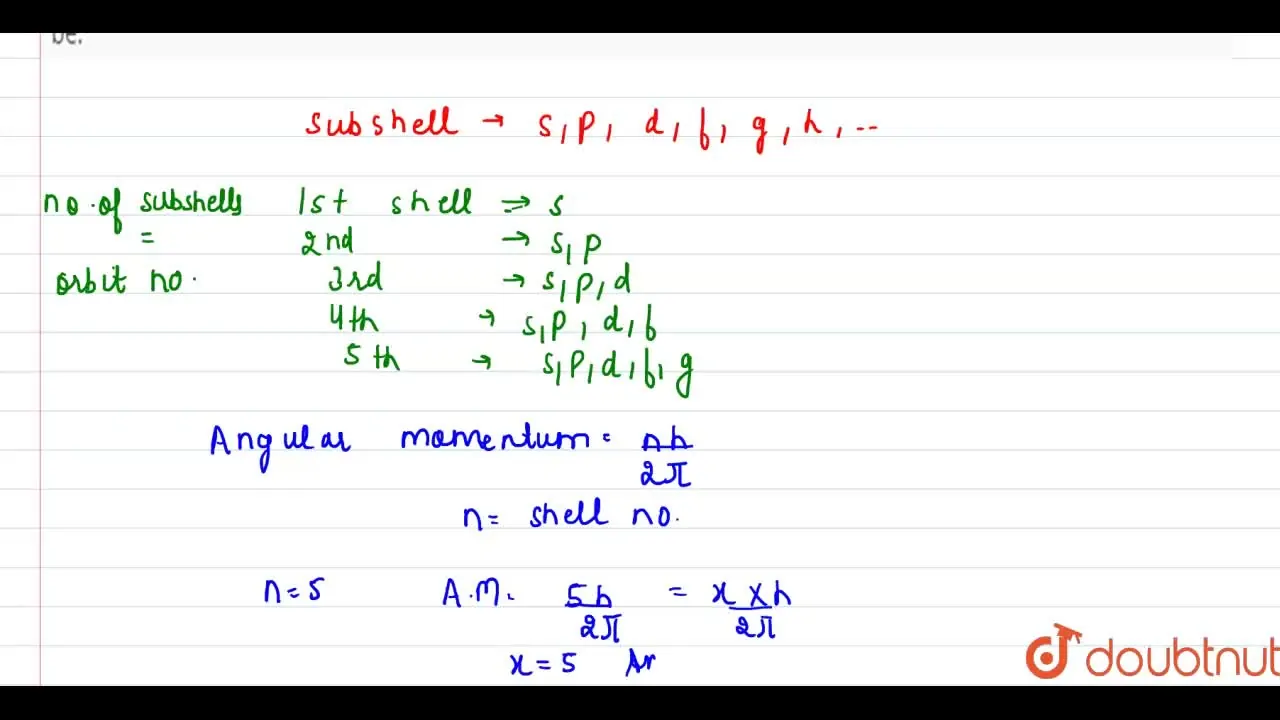 be.
subshell → s, p, d, f, g, h, --
no. of subshells 1st shell ⇒ s
= 2nd → s, p
orbit no. 3rd → s, p, d
4th → s, p, d, f
5th → s, p, d, f, g
Angular momentum = nh
2π
n = shell no.
n = 5 A.M. 5h = x X h
2π 2π
x = 5 Ar
doubtnut